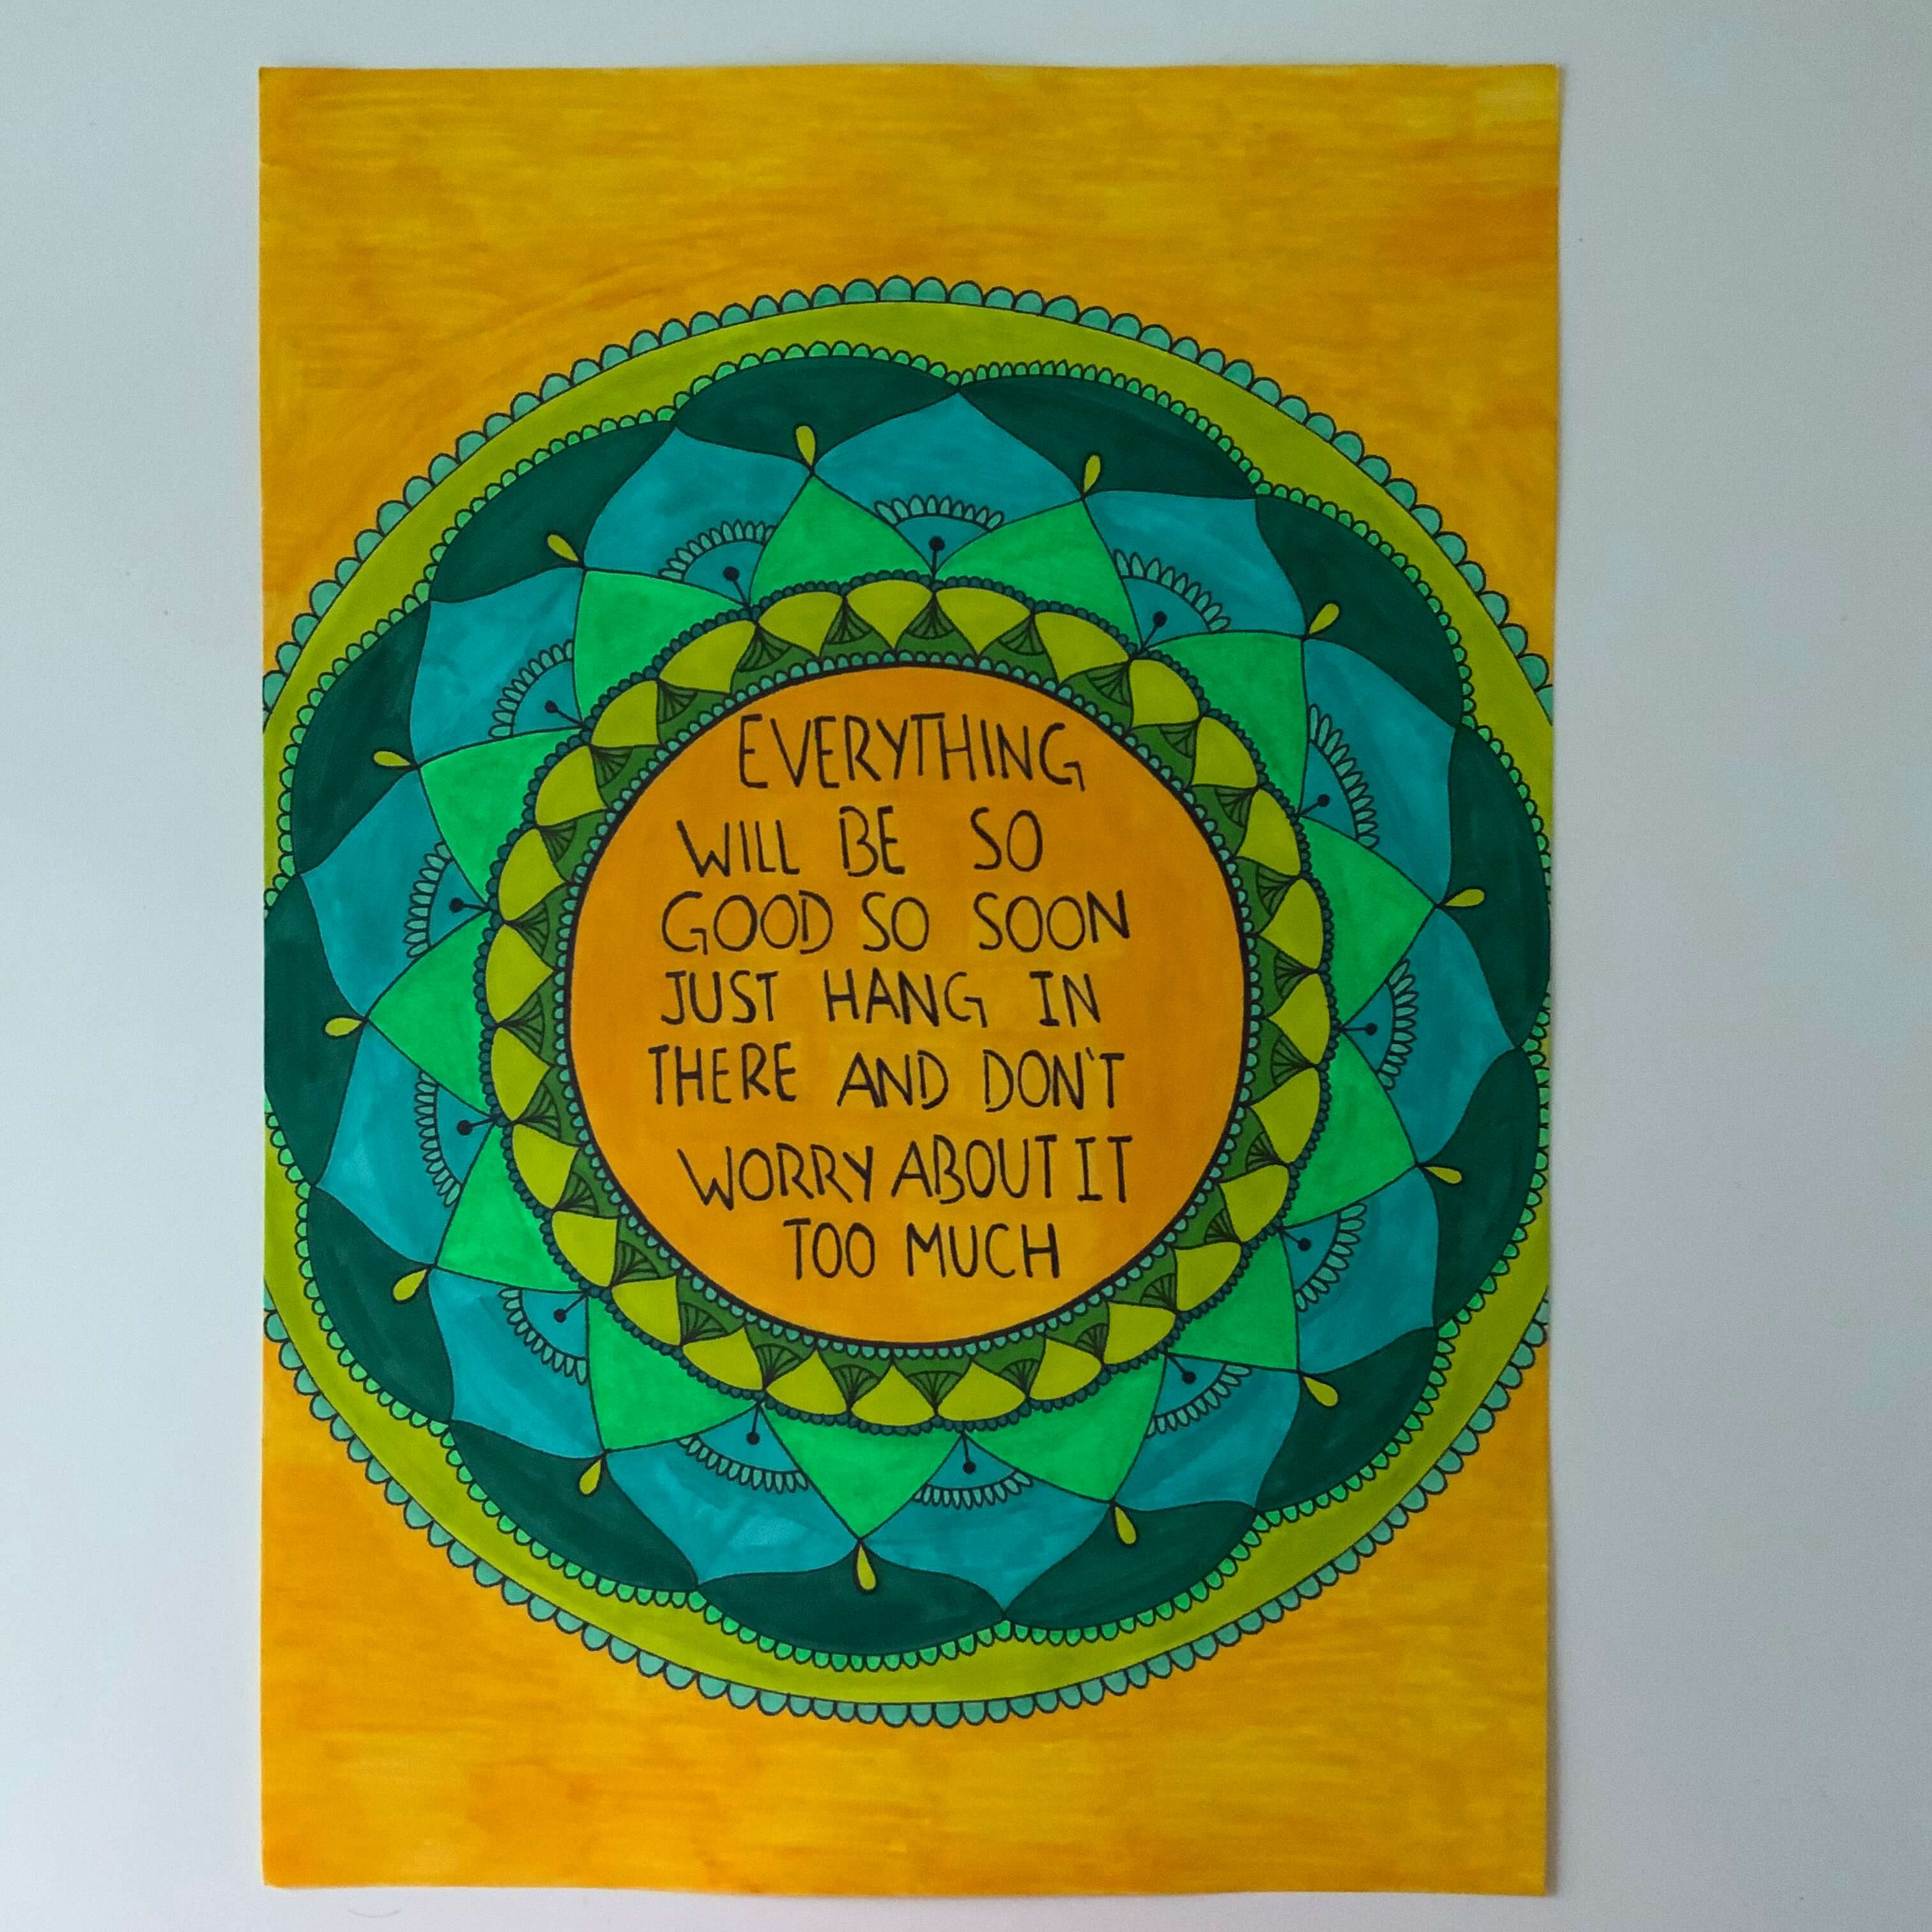 EVERYTHING
WILL BE SO
GOOD SO SOON
JUST HANG IN
THERE AND DON'T
WORRY ABOUT IT
TOO MUCH